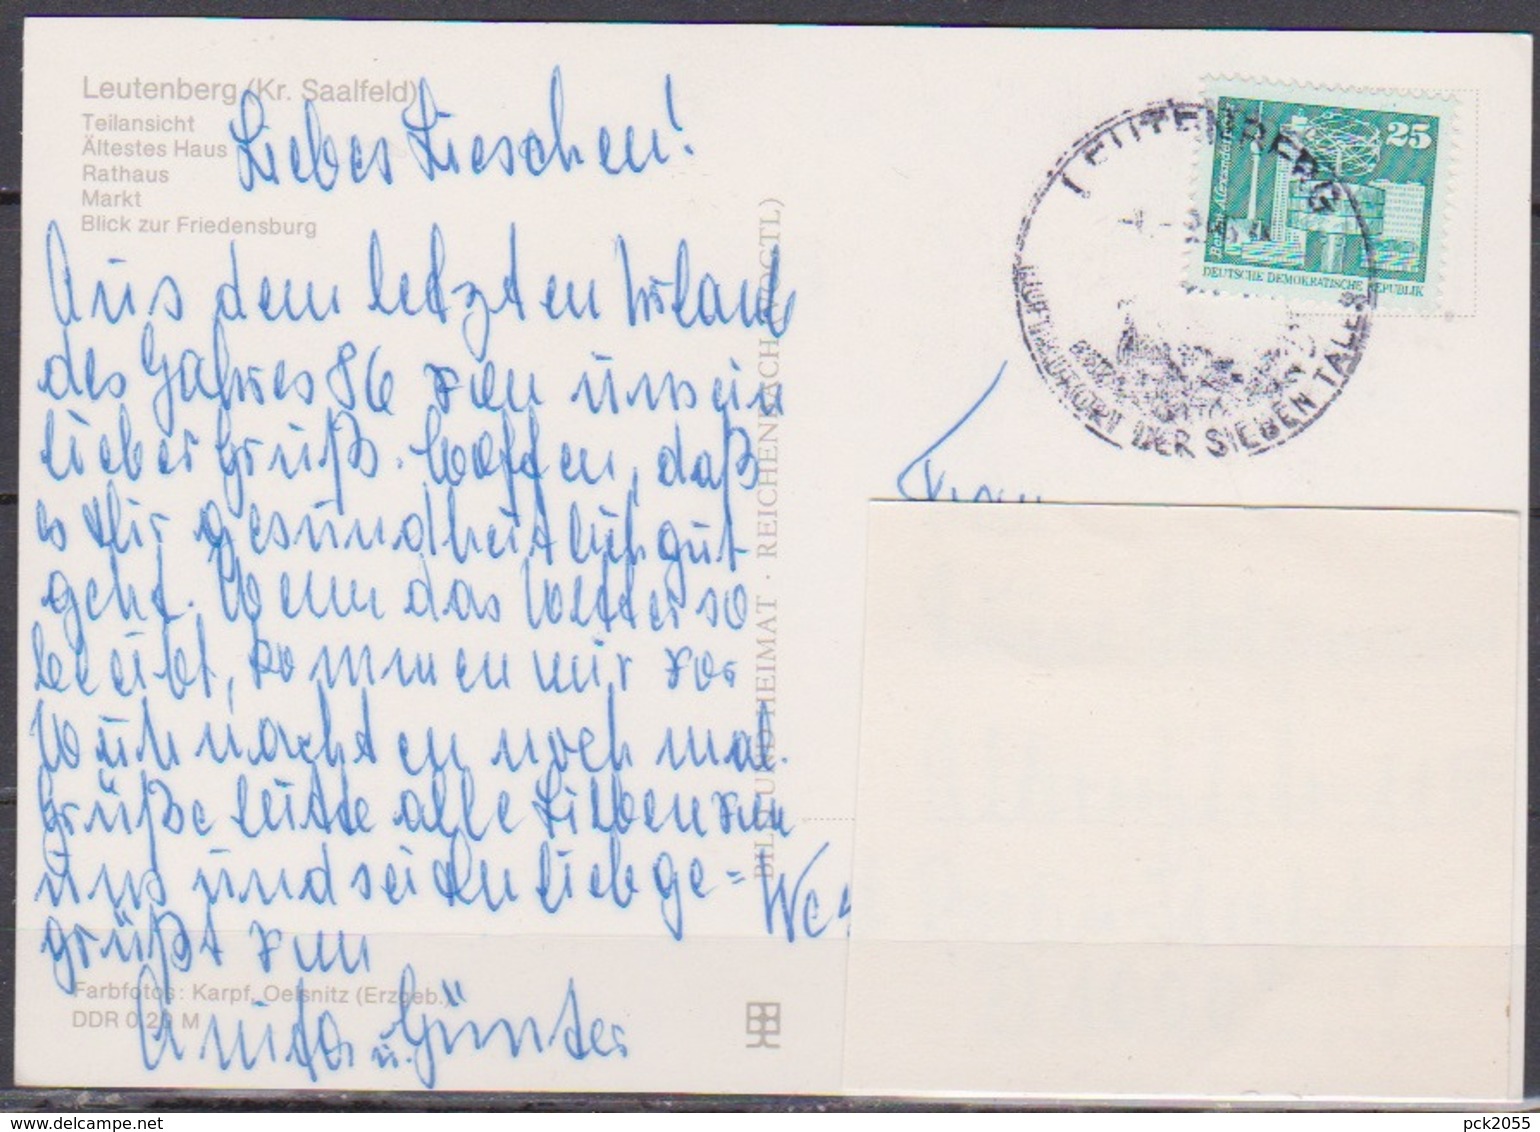 Leutenberg (Kr. Saalfeld)
Teilansicht
Ältestes Haus
Rathaus
Markt
Blick zur Friedensburg
Liebes Lieschen!
Aus dem letzten Urlaub
des Jahres 86 von uns ein
lieber Gruß. Hoffen, daß
es Dir gesundheitlich gut
geht. Wenn das Wetter so
bleibt, kommen wir vor
Weihnachten noch mal.
Grüße bitte alle Lieben von
uns und sei Du lieb ge=
grüßt von
Anita u. Günter
Farbfotos: Karpf, Oelsnitz (Erzgeb.)
DDR 0,20 M
BILD UND HEIMAT · REICHENBACH (VOGTL)
LEUTENBERG
DER SIEBEN TÄLER
25
DEUTSCHE DEMOKRATISCHE REPUBLIK
delcampe.net
pck2055